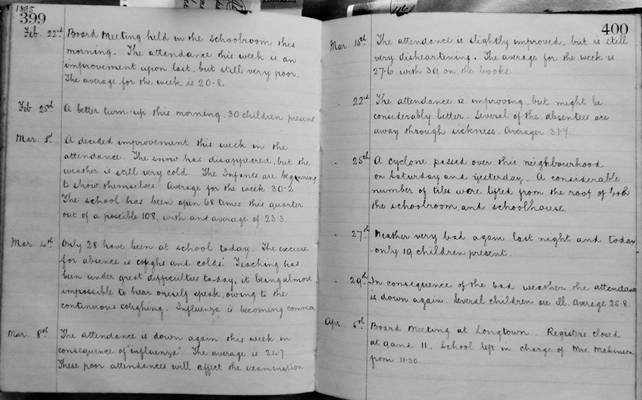 1895
399
Feb. 22nd Board Meeting held in the schoolroom this
morning. The attendance this week is an
improvement upon last, but still very poor.
The average for the week is 20.8.
Feb 25th A better turn-up this morning. 30 children present
Mar. 1st A decided improvement this week in the
attendance. The snow has disappeared, but the
weather is still very cold. The Infants are beginning
to show themselves. Average for the week 30.2
The school has been open 68 times this quarter
out of a possible 108, with an average of 23.3.
Mar. 4th Only 28 have been at school today. The excuse
for absence is coughs and colds. Teaching has
been under great difficulties to-day, it being almost
impossible to hear oneself speak, owing to the
continuous coughing. Influenza is becoming common
Mar. 8th The attendance is down again this week in
consequence of "influenza". The average is 24.7
These poor attendances will affect the examination
400
Mar. 15th The attendance is slightly improved, but is still
very disheartening. The average for the week is
27.6 with 39 on the books.
. 22nd The attendance is improving, but might be
considerably better. Several of the absentees are
away through sickness. Average
. 25th A cyclone passed over this neighbourhood
on Saturday and yesterday. A considerable
number of tiles were lifted from the roof of both
the schoolroom and schoolhouse.
. 27th Weather very bad again last night and today
only 19 children present.
. 29th In consequence of the bad weather the attendance
is down again. Several children are ill. Average 25.8.
Apr. 5th Board Meeting at Longtown. Registers closed
at 9 and 11. School left in charge of Mrs.
from 11.30.